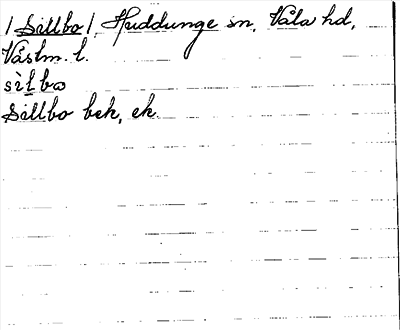 /Sillbo/ Huddunge sn, Våla hd,
Västm. l.
sìlbω
Sillbo bek, ek.